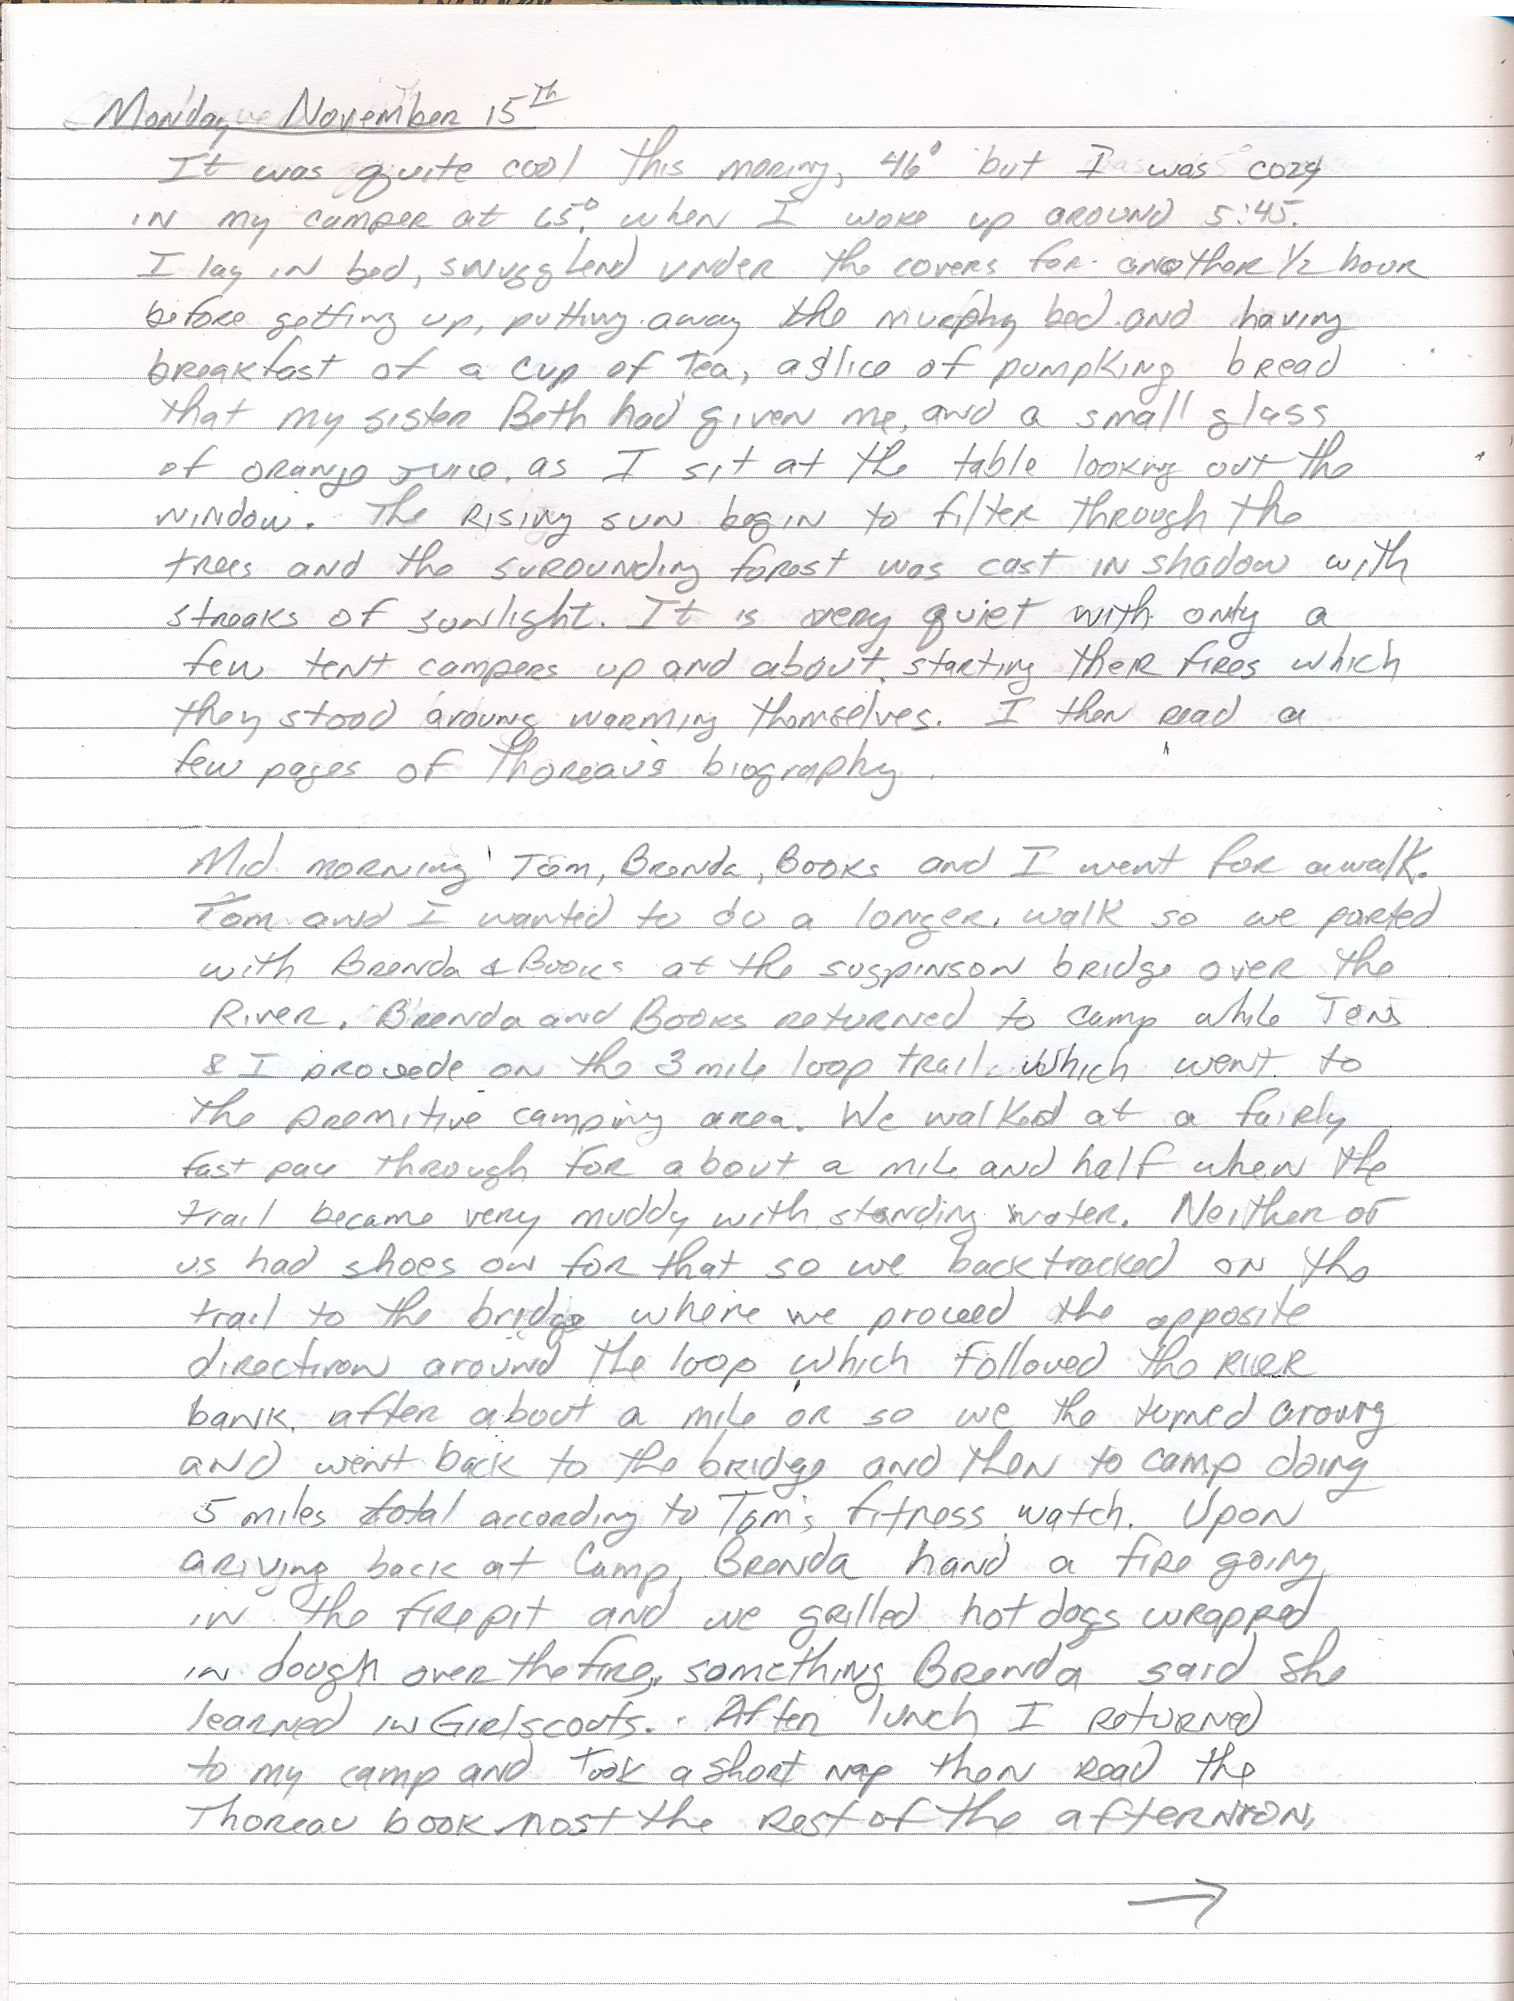 Monday November 15th
It was quite cool this moring, 46° but I was cozy
in my camper at 65° when I woke up around 5:45.
I lay in bed, snugglend under the covers for another 1/2 hour
before getting up, putting away the murphy bed and having
breakfast of a cup of Tea, a slice of pumpking bread
that my sister Beth had given me, and a small glass
of orange juice, as I sit at the table looking out the
window. The rising sun begin to filter through the
trees and the surounding forest was cast in shadow with
streaks of sunlight. It is very quiet with only a
few tent campers up and about, starting their fires which
they stood aroung warming themselves. I then read a
few pages of Thoreau's biography.
Mid morning Tom, Brenda, Books and I went for a walk.
Tom and I wanted to do a longer walk so we parted
with Brenda & Books at the suspinson bridge over the
River. Brenda and Books returned to camp while Tom
& I procede on the 3 mile loop trail which went to
the premitive camping area. We walked at a fairly
fast pace through for about a mile and half when the
trail became very muddy with standing water. Neither of
us had shoes on for that so we backtracked on the
trail to the bridge where we proceed the opposite
direction around the loop which followed the River
bank. after about a mile or so we the turned aroung
and went back to the bridge and then to camp doing
5 miles total according to Tom's fitness watch. Upon
ariving back at Camp, Brenda hand a fire going
in the firepit and we grilled hot dogs wrapped
in dough over the fire, something Brenda said she
learned in Girlscouts. After lunch I returned
to my camp and Took a short nap then read the
Thoreau book most the rest of the afternoon.
→